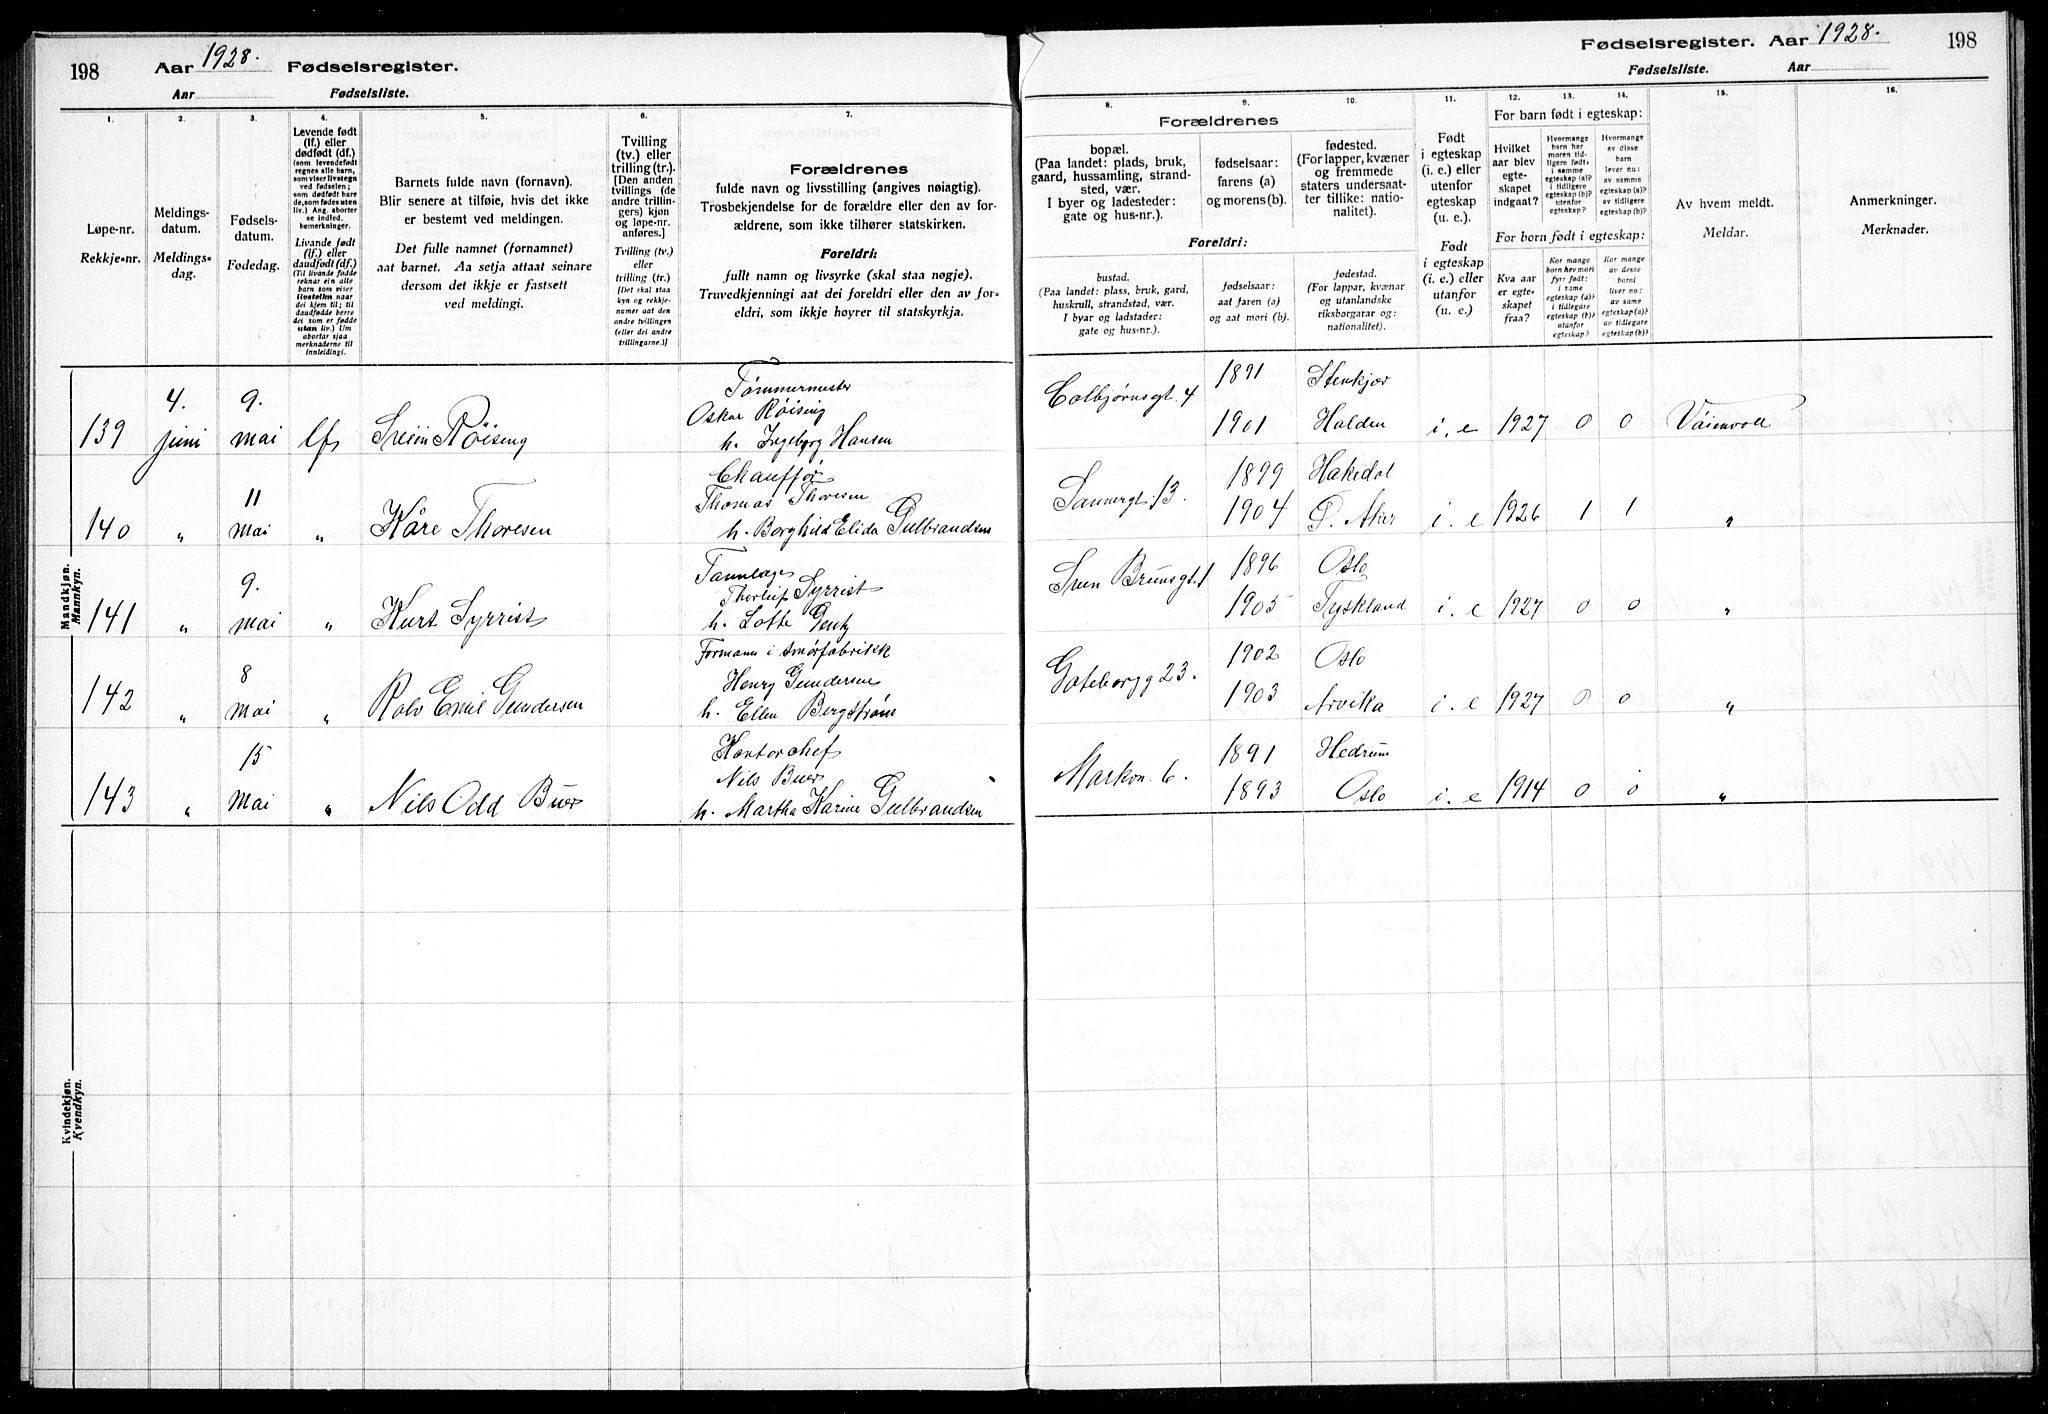 198
Aar 1928. Fødselsregister.
Aar Fødselsliste.
1. 2. 3. 4. 5. 6. 7.
Løpe-nr.
Rekkje-nr.
Meldings-
datum.
Meldings-
dag.
Fødsels-
datum.
Fødedag.
Levende født
(lf.) eller
dødfødt (df.)
(som levendefødt
regnes alle barn,
som viser livstegn
ved fødselen;
som dødfødt bare
de, som fødes uten
liv.) Ang. aborter
se indled.
bemerkninger.
Livande født
(lf.) eller
daudfødt (df.)
(Til livande fødde
reknar ein alle
barn som viser
livsteikn naar
dei kjem til; til
daudfødde berre
dei som er fødde
utan liv.) Um
abortar sjaa
merknaderne til
innleidingi.
Barnets fulde navn (fornavn).
Blir senere at tilføie, hvis det ikke
er bestemt ved meldingen.
Det fulle namnet (fornamnet)
aat barnet. Aa setja attaat seinare
dersom det ikkje er fastsett
ved meldingi.
Tvilling
(tv.) eller
trilling (tr.).
[Den anden
tvillings (de
andre trillin-
gers) kjøn
og løpe-nr.
anføres.]
Tvilling (tv.)
eller
trilling (tr.)
[Det skal staa
kyn og rekkje-
numer aat den
andre tvillingen
(eller dei andre
trillingarne.)]
Forældrenes
fulde navn og livsstilling (angives nøiagtig).
Trosbekjendelse for de forældre eller den av for-
ældrene, som ikke tilhører statskirken.
Foreldri:
fullt namn og livsyrke (skal staa nøgje).
Truvedkjenningi aat dei foreldri eller den av for-
eldri, som ikkje høyrer til statskyrkja.
Mandkjøn.
Mannkyn.
139 4. juni 9. mai lf Svein Röising
Tømmermester
Oskar Röising
h. Ingeborg Hansen
140 " 11 mai " Kåre Thoresen
Chauffør
Thomas Thoresen
h. Borghild Elida Gulbrandsen
141 " 9. mai " Kurt Syrrist
Tannlæge
Thorleif Syrrist
h. Lotte Gentz
142 " 8 mai " Rolv Emil Gundersen
Formann i smørfabrikk
Henry Gundersen
h. Ellen Bergstrøm
143 " 15 mai " Nils Odd Buer
Kontorchef
Nils Buer
h. Martha Karine Gulbrandsen
Kvindekjøn.
Kvendkyn.
Fødselsregister. Aar 1928. 198
Fødselsliste. Aar
8. 9. 10. 11. 12. 13. 14. 15. 16.
Forældrenes
bopæl.
(Paa landet: plads, bruk,
gaard, hussamling, strand-
sted, vær.
I byer og ladesteder:
gate og hus-nr.).
fødselsaar:
farens (a)
og morens (b).
fødested.
(For lapper, kvæner
og fremmede
staters undersaat-
ter tillike: natio-
nalitet).
Foreldri:
bustad.
(Paa landet: plass, bruk, gard,
huskrull, strandstad, vær.
I byar og ladstader:
gate og hus-nr.).
fødselsaar:
aat faren (a)
og aat mori (b).
fødestad.
(For lappar, kvænar
og utanlandske
riksborgarar og:
nationalitet).
Født
i egteskap
(i. e.) eller
utenfor
egteskap
(u. e.).
Født
i egteskap
(i. e.) eller
utanfor
egteskap
(u. e.).
For barn født i egteskap:
Hvilket
aar blev
egte-
skapet
indgaat?
Hvormange
barn har
moren tid-
ligere født,
i samme
egteskap (a)?
i tidligere
egteskap (b)?
utenfor
egteskap?
Hvormange
av disse
barn
lever nu:
av samme
egteskap (a)?
av tidligere
egteskap (b)?
For born født i egteskap:
Kva aar
er egte-
skapet
fraa?
Kor mange
born hev mori
fyrr født:
i same
egteskap (a)?
i tidlegare
egteskap (b)?
utanfor
egteskap?
Kor mange
av desse
borni
liver no:
av same
egteskap (a)?
av tidlegare
egteskap (b)?
Av hvem meldt.
Meldar.
Anmerkninger.
Merknader.
Colbjørnsgt. 4 1891 Stenkjær
1901 Halden i. e 1927 0 0
Sannergt. 13. 1899 Hakedal
1904 Ø. Aker i. e 1926 1 1 "
Sven Brunsgt. 1 1896 Oslo
1905 Tyskland i. e 1927 0 0 "
Goteborgg 23. 1902 Oslo
1903 Arvika i. e 1927 0 0 "
Markvn. 6. 1891 Hedrum
1893 Oslo i. e 1914 0 0 "